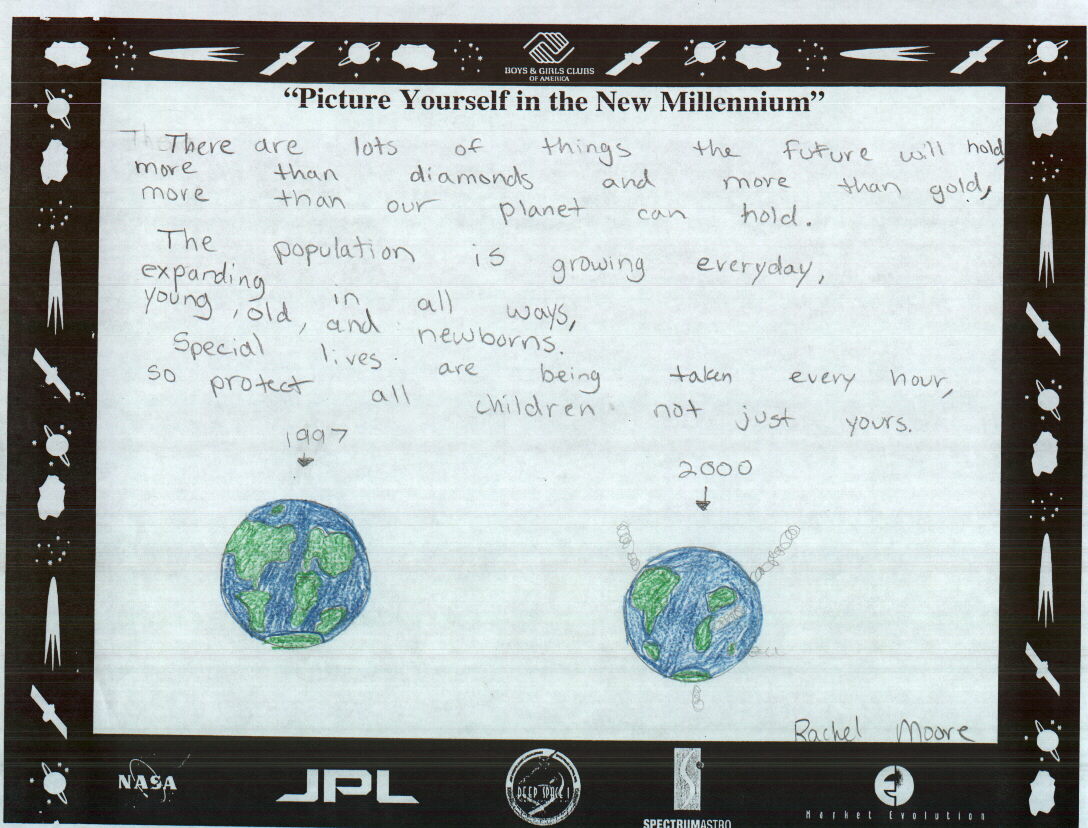 BOYS & GIRLS CLUBS
OF AMERICA
“Picture Yourself in the New Millennium”
There are lots of things the future will hold,
more than diamonds and more than gold,
more than our planet can hold.
The population is growing everyday,
expanding in all ways,
young, old, and newborns.
Special lives are being taken every hour,
so protect all children not just yours.
1997
2000
Rachel Moore
NASA
JPL
DEEP SPACE 1
SPECTRUMASTRO
Market Evolution